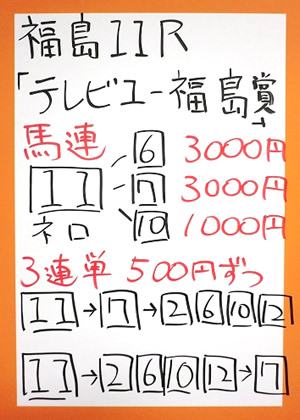 福島11R
「テレビユー福島賞」
馬連 6 3000円
11 7 3000円
ネロ 10 1000円
3連単 500円ずつ
11→7→2 6 10 12
11→2 6 10 12→7